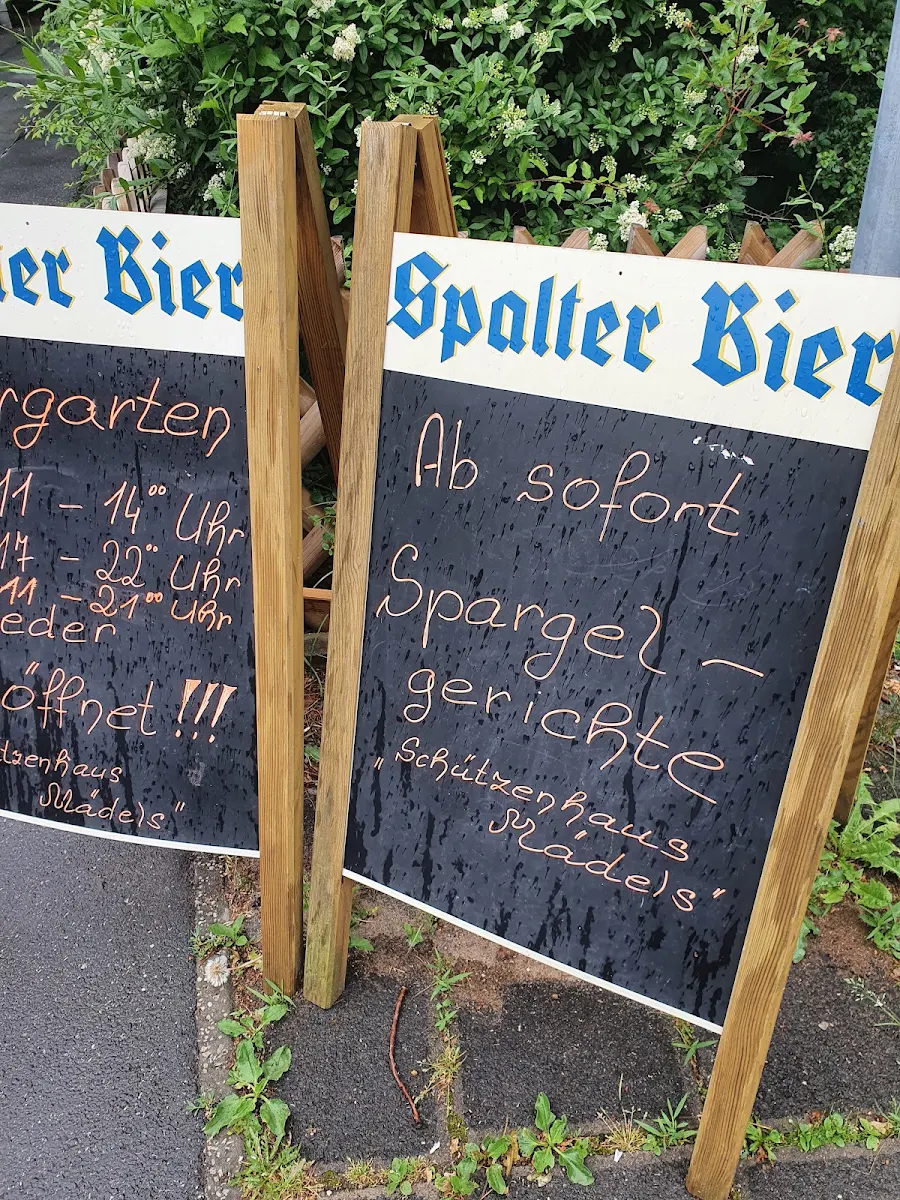 ier Bier
rgarten
11 - 14⁰⁰ Uhr
17 - 22⁰⁰ Uhr
11 - 21⁰⁰ Uhr
eder
öffnet !!!
tzenhaus
Mädels"
Spalter Bier
Ab sofort
Spargel-
gerichte
„Schützenhaus
Mädels"